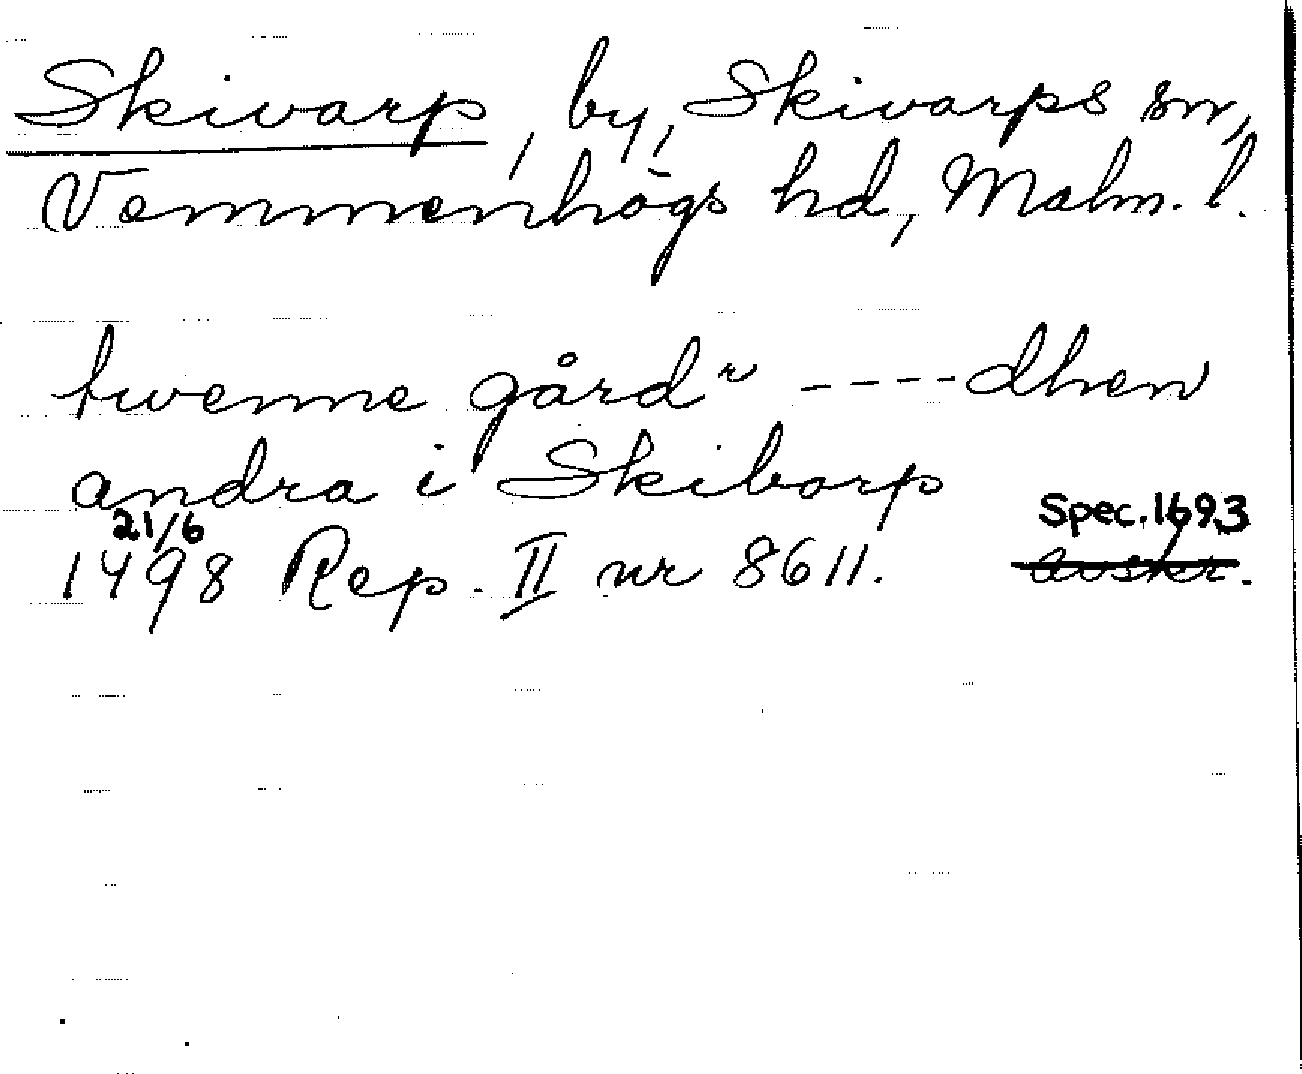 Skivarp, by, Skivarps sn,
Vemmenhögs hd, Malm. l.
twenne gårdr ---- dhen
andra i Skibarp
21/6
1498 Rep. II nr 8611.
Spec. 1693
avskr.